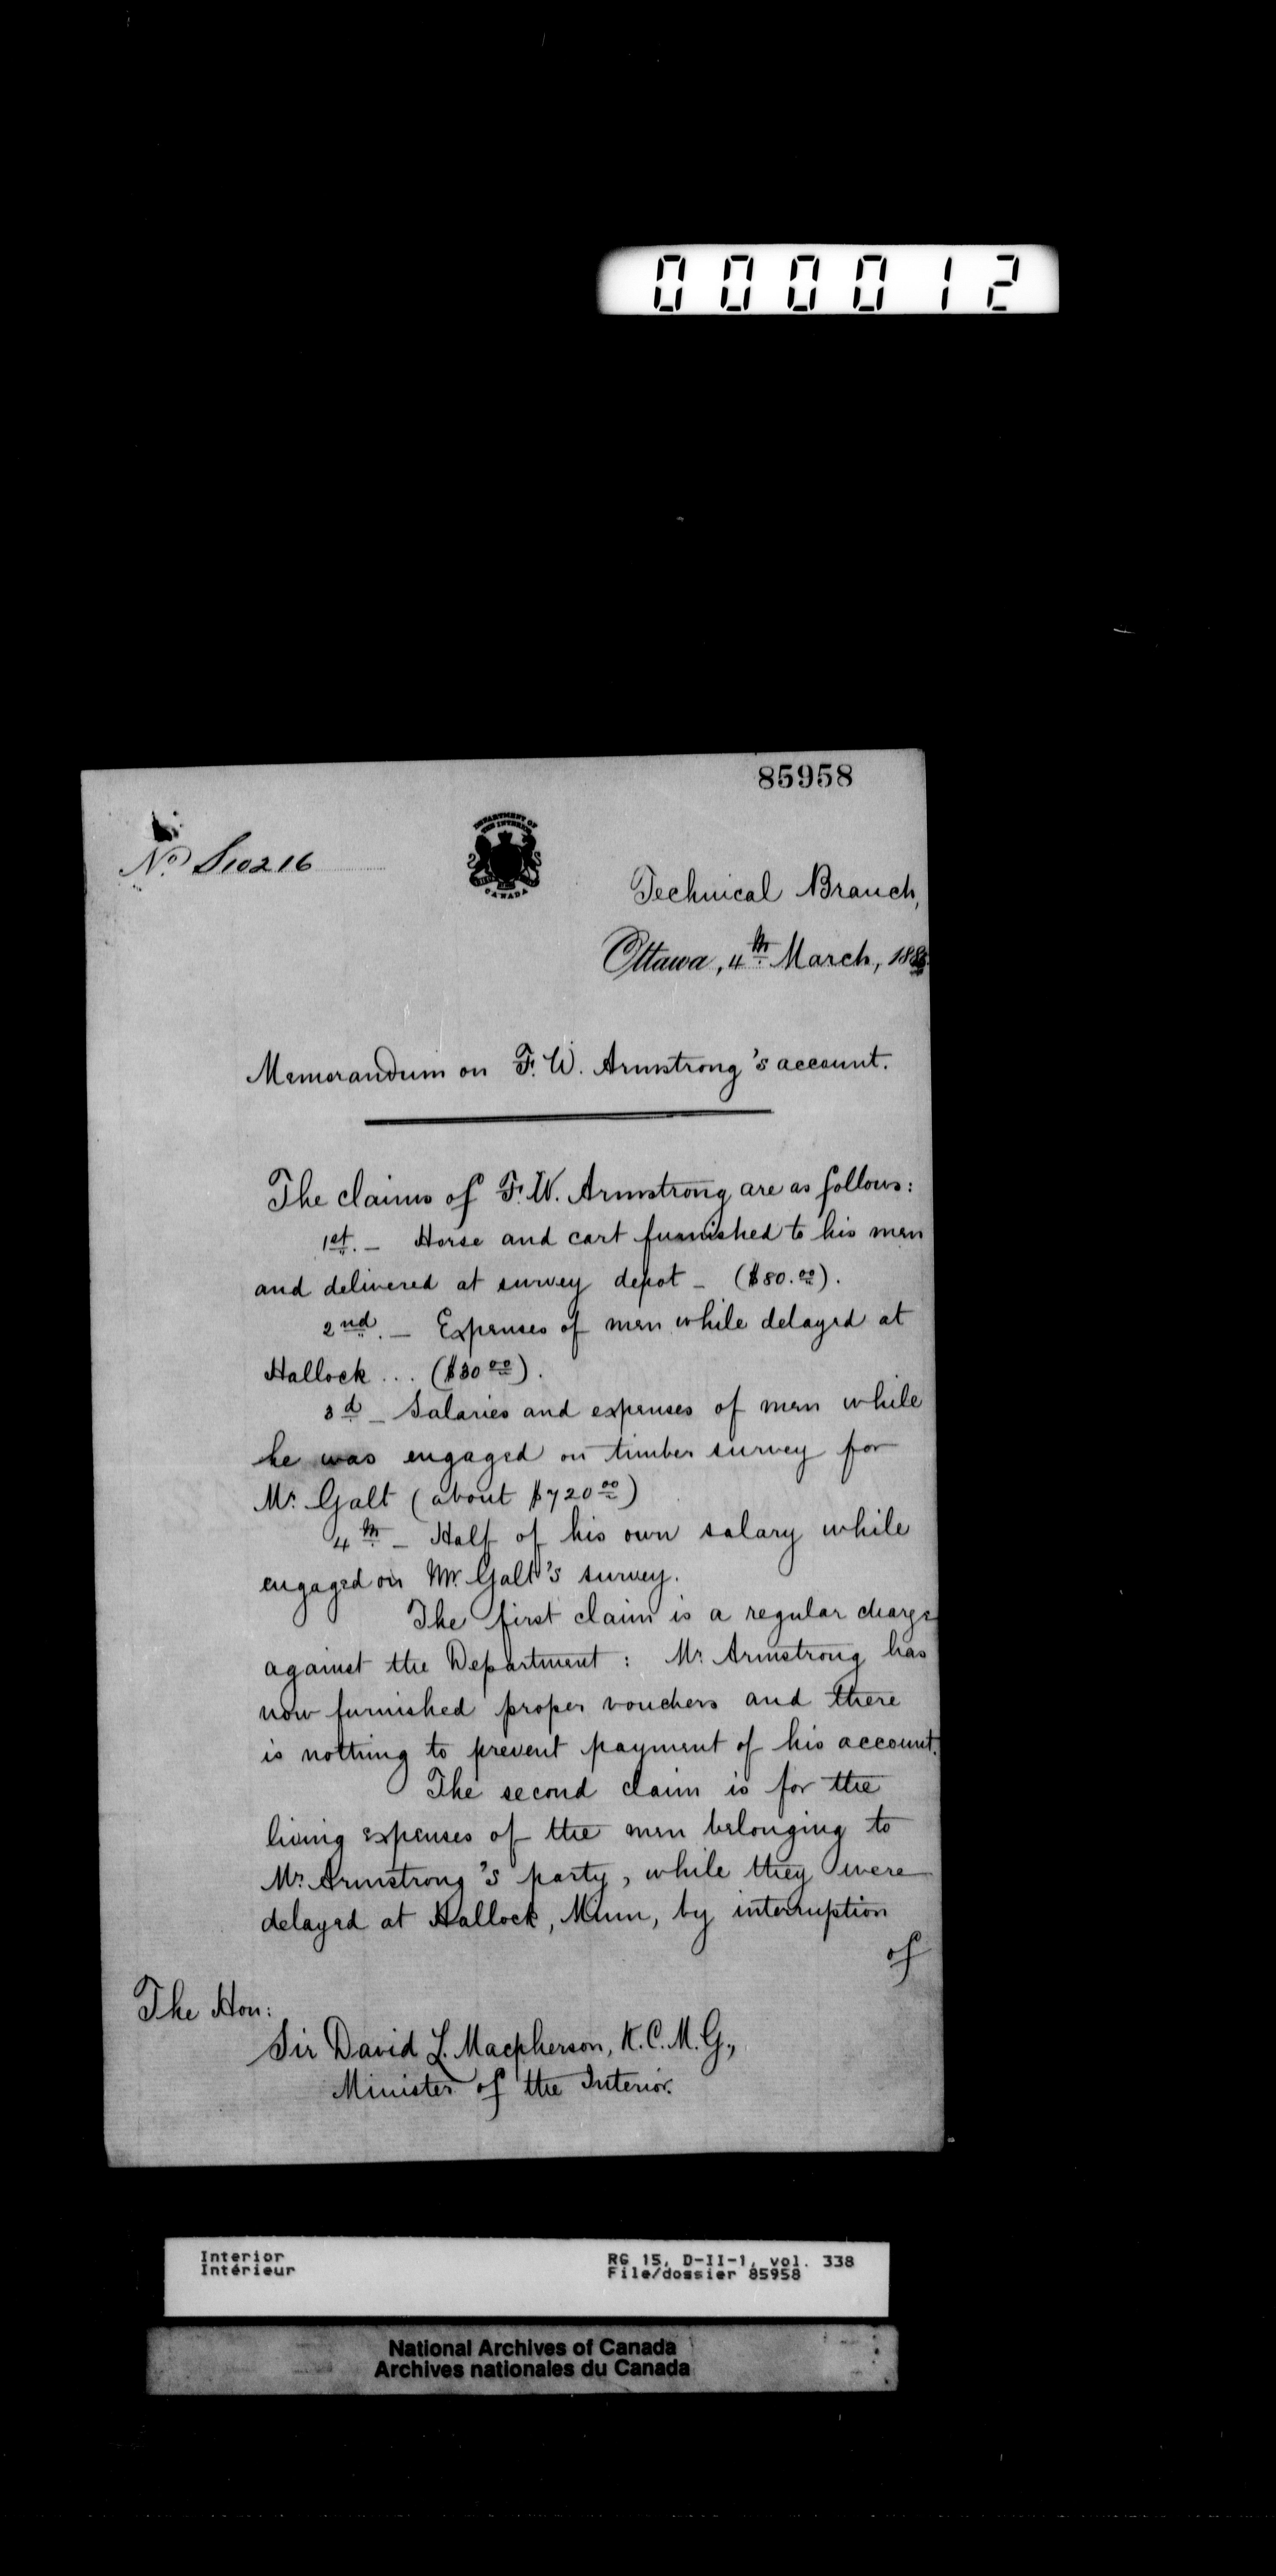 000012
85958
No. S10216
DEPARTMENT OF
THE INTERIOR
CANADA
Technical Branch,
Ottawa, 4th March, 188
Memorandum on F. W. Armstrong's account.
The claims of F. W. Armstrong are as follows:
1st. – Horse and cart furnished to his men
and delivered at survey depot – ($80.00).
2nd. – Expenses of men while delayed at
Hallock ... ($30 00).
3d – Salaries and expenses of men while
he was engaged on timber survey for
Mr. Galt (about $720 00)
4th – Half of his own salary while
engaged on Mr. Galt's survey.
The first claim is a regular charge
against the Department : Mr. Armstrong has
now furnished proper vouchers and there
is nothing to prevent payment of his account.
The second claim is for the
living expenses of the men belonging to
Mr. Armstrong's party, while they were
delayed at Hallock, Minn, by interruption
of
The Hon:
Sir David L. Macpherson, K.C.M.G.,
Minister of the Interior.
Interior RG 15, D-II-1, vol. 338
Intérieur File/dossier 85958
National Archives of Canada
Archives nationales du Canada